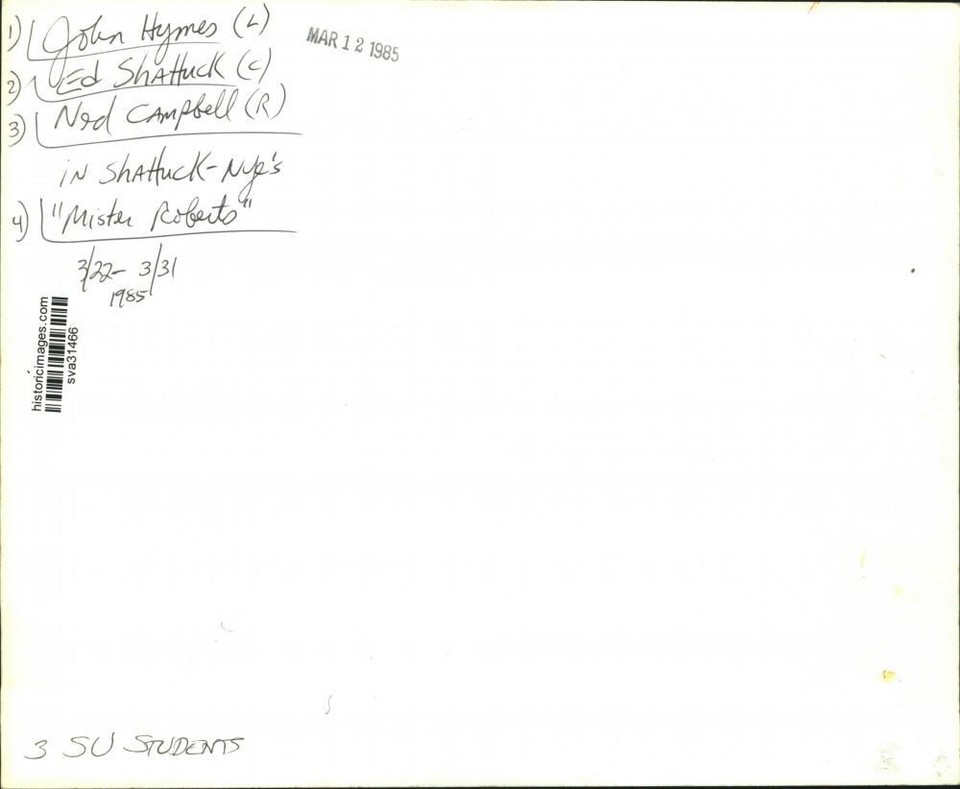 1) John Hymes (L)
MAR 12 1985
2) Ed Shattuck (C)
3) Ned Campbell (R)
in Shattuck-Nye's
4) "Mister Roberts"
3/22- 3/31
1985
historicimages.com
sva31466
3 SU STUDENTS